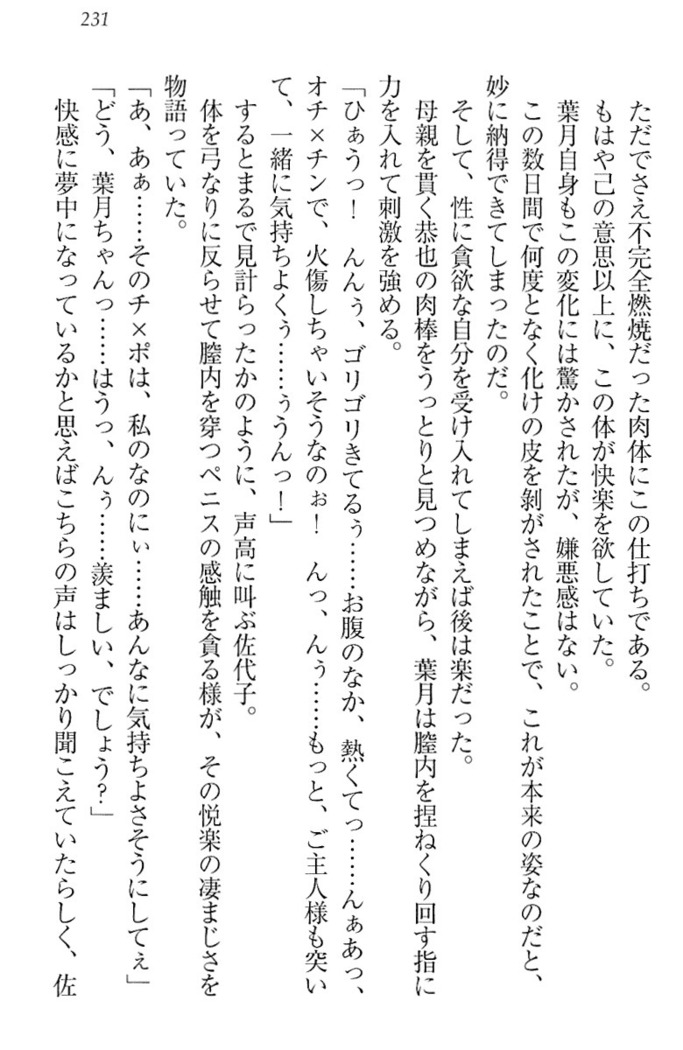 231
ただでさえ不完全燃焼だった肉体にこの仕打ちである。
もはや己の意思以上に、この体が快楽を欲していた。
葉月自身もこの変化には驚かされたが、嫌悪感はない。
この数日間で何度となく化けの皮を剝がされたことで、これが本来の姿なのだと、
妙に納得できてしまったのだ。
そして、性に貪欲な自分を受け入れてしまえば後は楽だった。
母親を貫く恭也の肉棒をうっとりと見つめながら、葉月は膣内を捏ねくり回す指に
力を入れて刺激を強める。
「ひぁうっ！　んんぅ、ゴリゴリきてるぅ……お腹のなか、熱くてっ……んぁあっ、
オチ×チンで、火傷しちゃいそうなのぉ！　んっ、んぅ……もっと、ご主人様も突い
て、一緒に気持ちよくぅ……ぅうんっ！」
するとまるで見計らったかのように、声高に叫ぶ佐代子。
体を弓なりに反らせて膣内を穿つペニスの感触を貪る様が、その悦楽の凄まじさを
物語っていた。
「あ、あぁ……そのチ×ポは、私のなのにぃ……あんなに気持ちよさそうにしてぇ」
「どう、葉月ちゃんっ……はうっ、んぅ……羨ましい、でしょう？」
快感に夢中になっているかと思えばこちらの声はしっかり聞こえていたらしく、佐